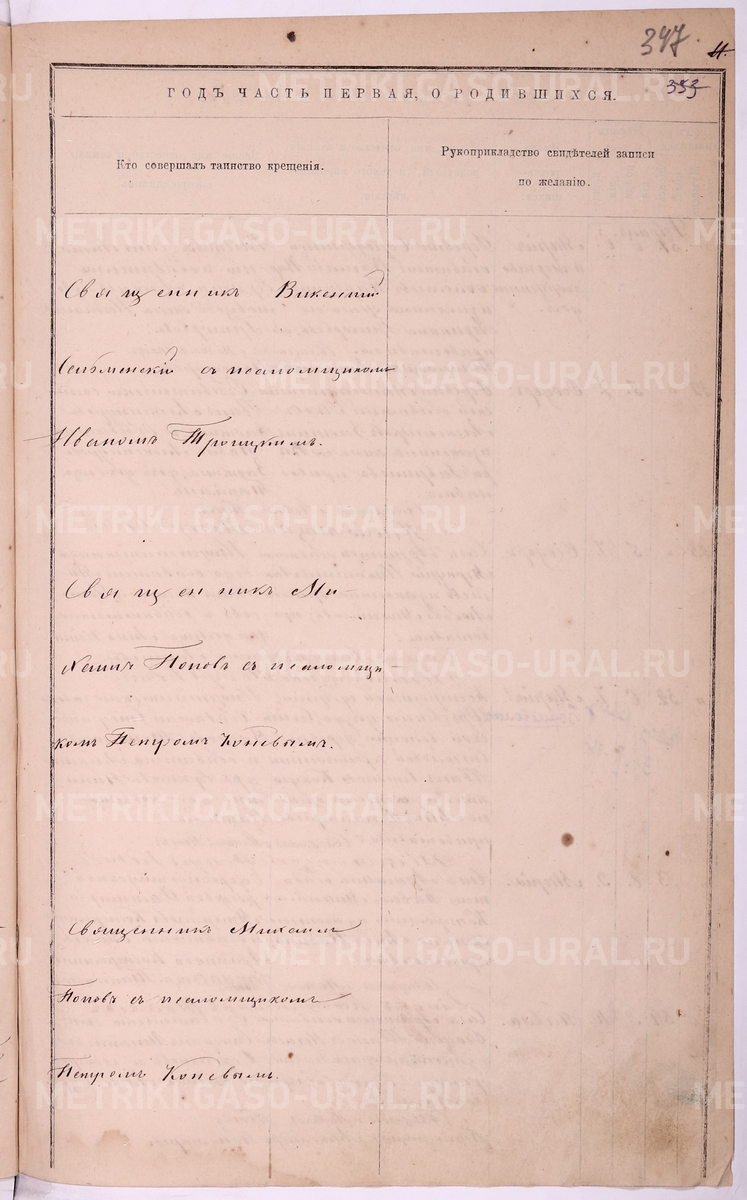 347.
4.
353
ГОДЪ ЧАСТЬ ПЕРВАЯ, О РОДИВШИХСЯ.
Кто совершалъ таинство крещенія.
Рукоприкладство свидѣтелей записи
по желанію.
Священникъ Викентій
съ псаломщикомъ
Иваномъ Троицкимъ.
Священникъ Ми-
хаилъ Поповъ съ псаломщи-
комъ Петромъ Коневымъ.
Священникъ Михаилъ
Поповъ съ псаломщикомъ
Петромъ Коневымъ.
METRIKI.GASO-URAL.RU